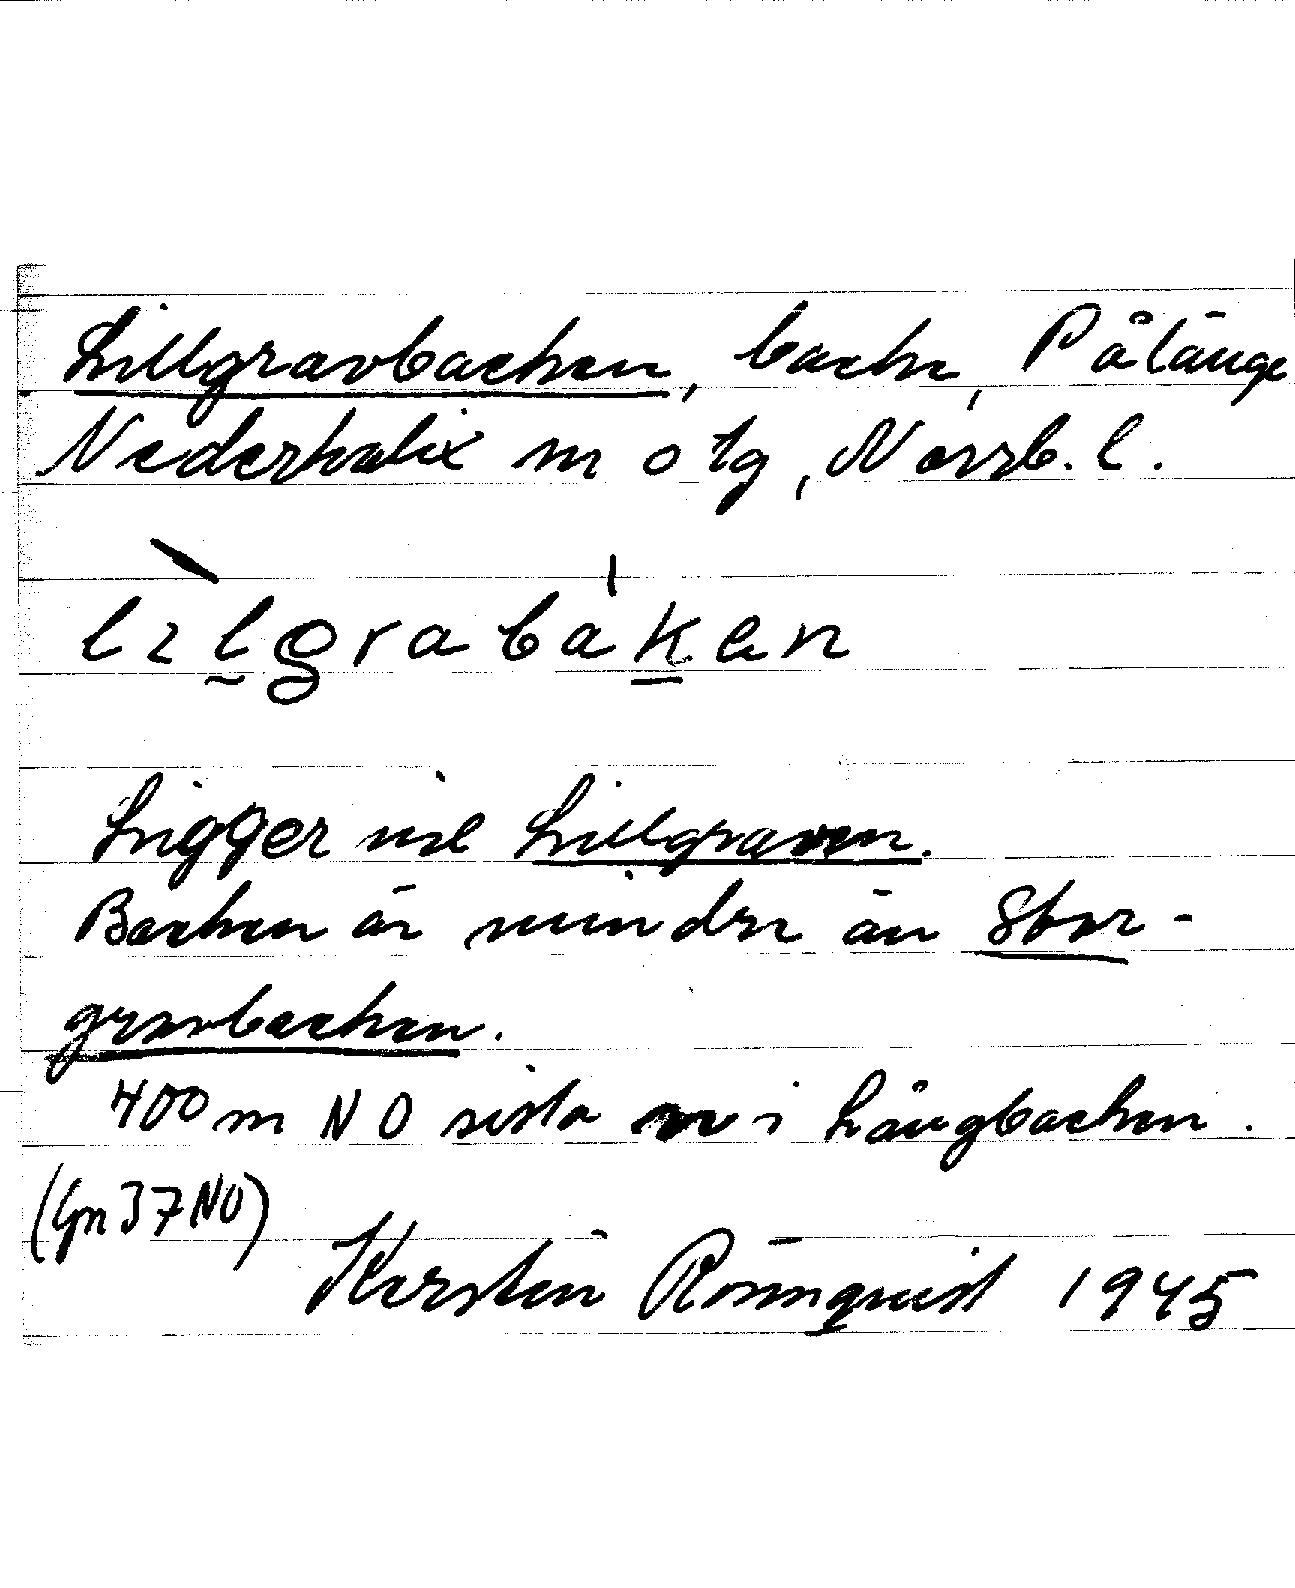 Lillgravbacken, backe, Pålänge
Nederkalix sn o tg, Norrb. l.
lılgrabaken
Ligger vid Lillgraven.
Backen är mindre än Stor-
gravbacken.
400 m NO sista i Långbacken.
(Gn 37 NO)
Kerstin Rönnquist 1945